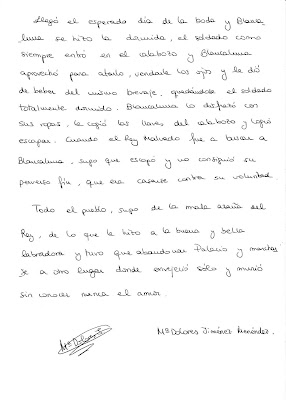 Llegó el esperado día de la boda y Blanca
luna se hizo la dormida, el soldado como
siempre entró en el calabozo y Blancaluna
aprovechó para atarlo, vendarle los ojos y le dió
de beber del mismo brevaje, quedándose el soldado
totalmente dormido. Blancaluna lo disfrazó con
sus ropas, le cogió las llaves del calabozo y logró
escapar. Cuando el Rey Malvado fue a buscar a
Blancaluna, supo que escapó y no consiguió su
perverso fin, que era casarse contra su voluntad.
Todo el pueblo, supo de la mala acción del
Rey, de lo que le hizo a la buena y bella
labradora y tuvo que abandonar Palacio y marchar
se a otro lugar donde envejeció solo y murió
sin conocer nunca el amor.
Mª Dolores
Mª Dolores Jiménez